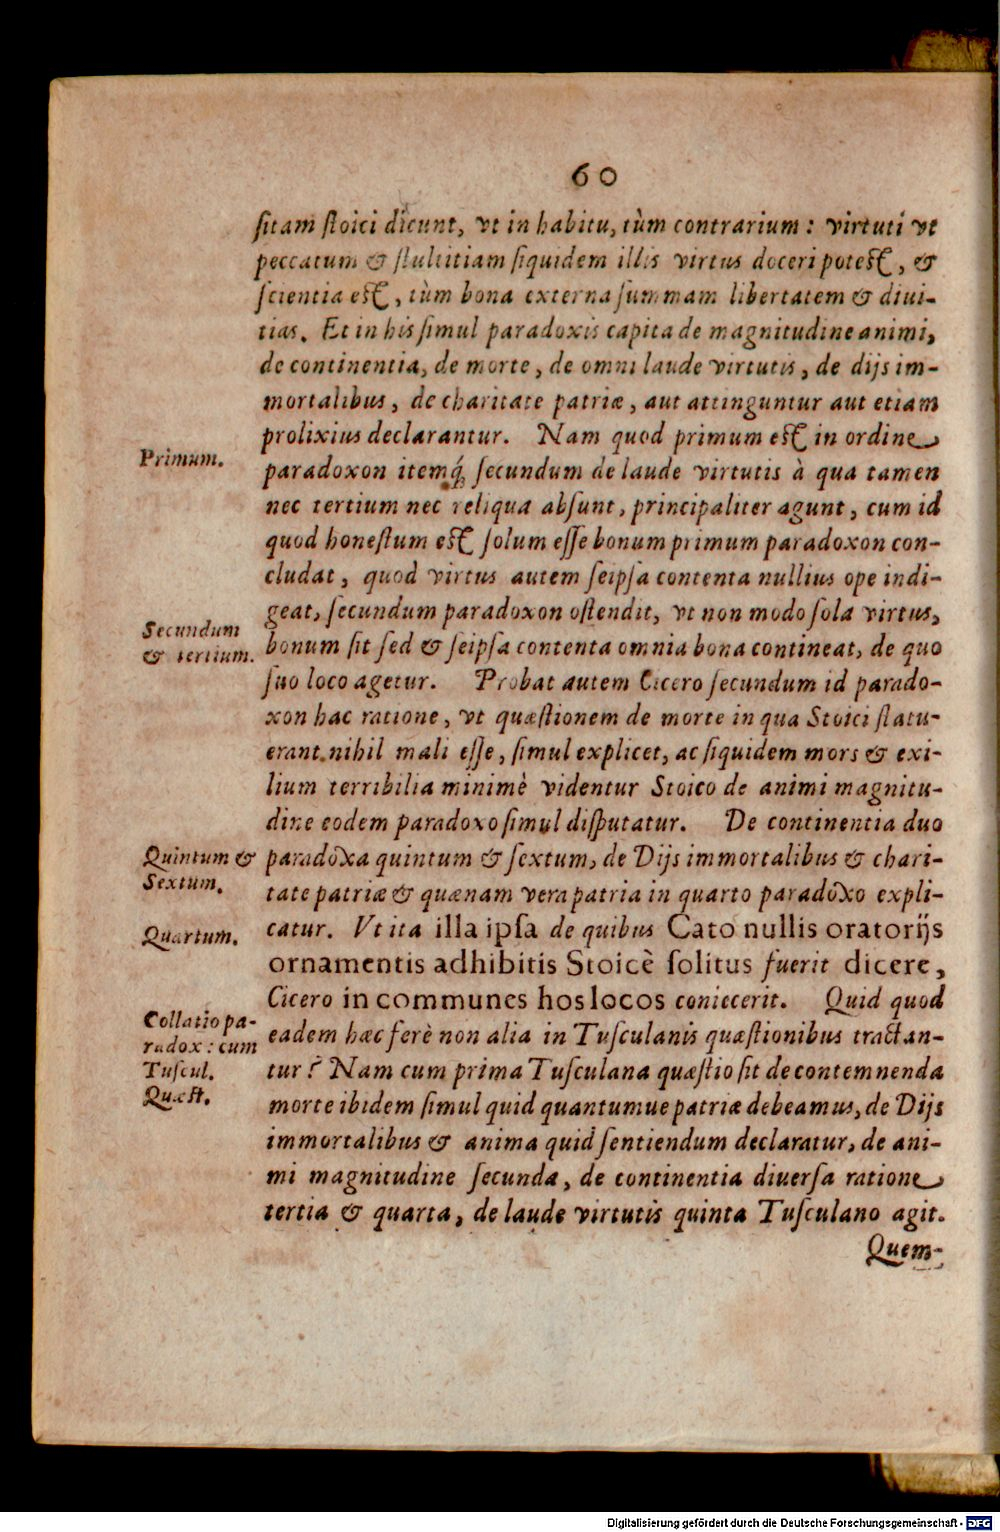 60
ſitam ſtoici dicunt, vt in habitu, tùm contrarium: virtuti vt
peccatum & ſtultitiam ſiquidem illis virtus doceri poteſt, &
ſcientia eſt, tùm bona externa ſummam libertatem & diui-
tias. Et in his ſimul paradoxis capita de magnitudine animi,
de continentia, de morte, de omni laude virtutis, de dijs im-
mortalibus, de charitate patriæ, aut attinguntur aut etiam
prolixius declarantur. Nam quod primum eſt in ordine
Primum.
paradoxon itemq́ue ſecundum de laude virtutis à qua tamen
nec tertium nec reliqua abſunt, principaliter agunt, cum id
quod honeſtum eſt ſolum eſſe bonum primum paradoxon con-
cludat, quod virtus autem ſeipſa contenta nullius ope indi-
geat, ſecundum paradoxon oſtendit, vt non modo ſola virtus,
Secundum
& tertium.
bonum ſit ſed & ſeipſa contenta omnia bona contineat, de quo
ſuo loco agetur. Probat autem Cicero ſecundum id parado-
xon hac ratione, vt quæſtionem de morte in qua Stoici ſtatu-
erant nihil mali eſſe, ſimul explicet, ac ſiquidem mors & exi-
lium terribilia minimè videntur Stoico de animi magnitu-
dine eodem paradoxo ſimul diſputatur. De continentia duo
Quintum &
Sextum.
paradoxa quintum & ſextum, de Dijs immortalibus & chari-
tate patriæ & quænam vera patria in quarto paradoxo expli-
Quartum.
catur. Vt ita illa ipſa de quibus Cato nullis oratorijs
ornamentis adhibitis Stoicè ſolitus fuerit dicere,
Cicero in communes hos locos coniecerit. Quid quod
Collatio pa-
radox: cum
Tuſcul.
Quæſt.
eadem hæc ferè non alia in Tuſculanis quæſtionibus tractan-
tur? Nam cum prima Tuſculana quæſtio ſit de contemnenda
morte ibidem ſimul quid quantumue patriæ debeamus, de Dijs
immortalibus & anima quid ſentiendum declaratur, de ani-
mi magnitudine ſecunda, de continentia diuerſa ratione
tertia & quarta, de laude virtutis quinta Tuſculano agit.
Quem-
Digitalisierung gefördert durch die Deutsche Forschungsgemeinschaft - DFG